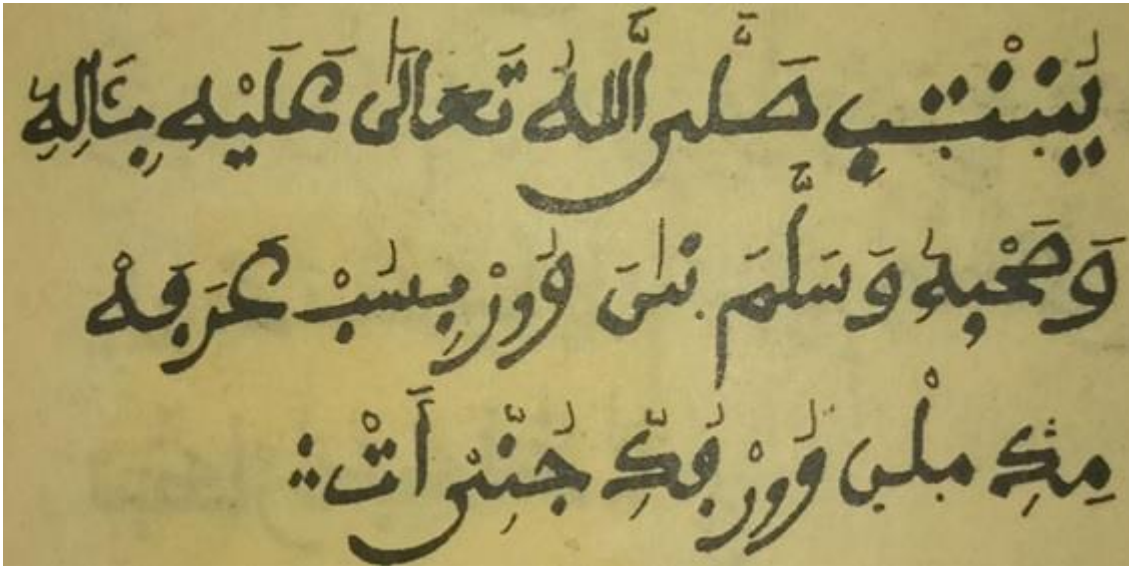 يٰنِنْتبِ صَلَّى اَللَّهُ تَعَالَى عَلَيْهِ بِئَالِهِ
وَصَحْبِهِ وَسَلَّمَ نىَ وٰورْ بِسبْ عَرَفَهْ
مِڭِ ملْنِ وٰورْ فكِّ جنِّى أَتْ